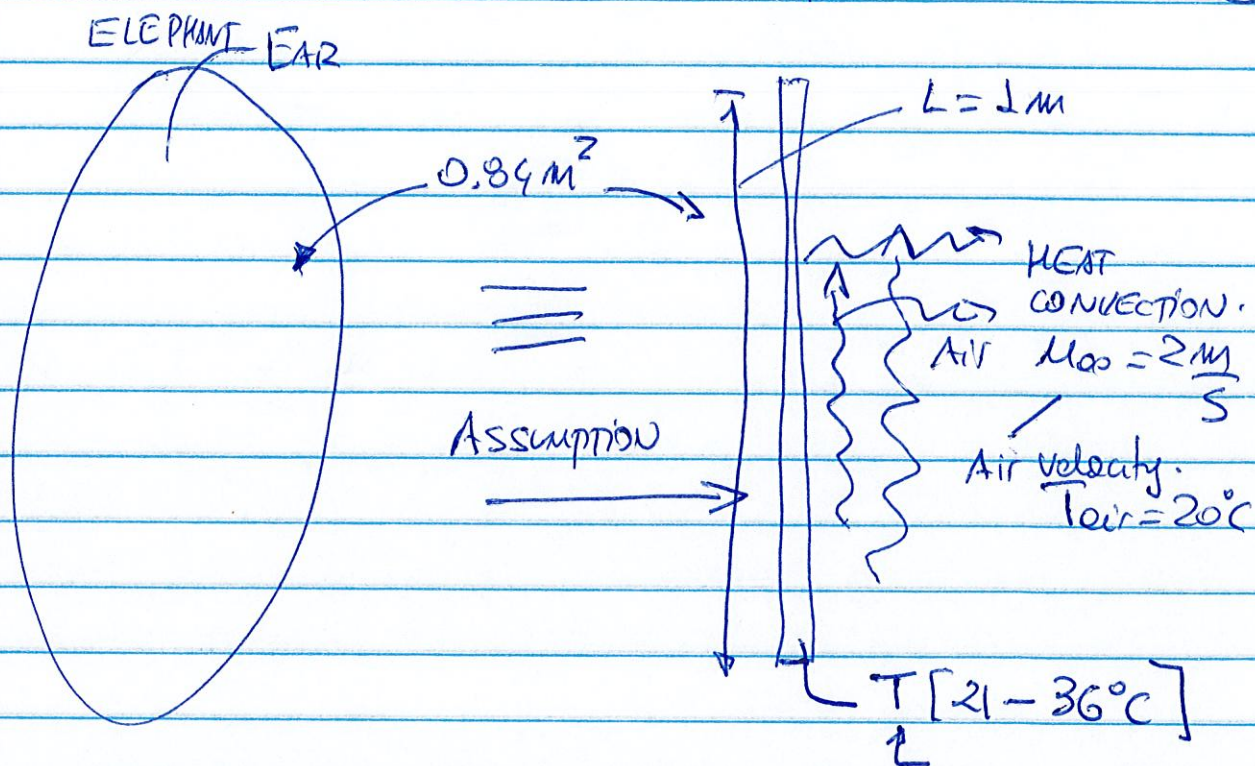 ELEPHANT EAR
L = 1 m
0.84 m²
HEAT
CONVECTION.
Air u∞ = 2 m/s
ASSUMPTION
Air velocity.
Tair = 20°C
T [21 - 36°C]